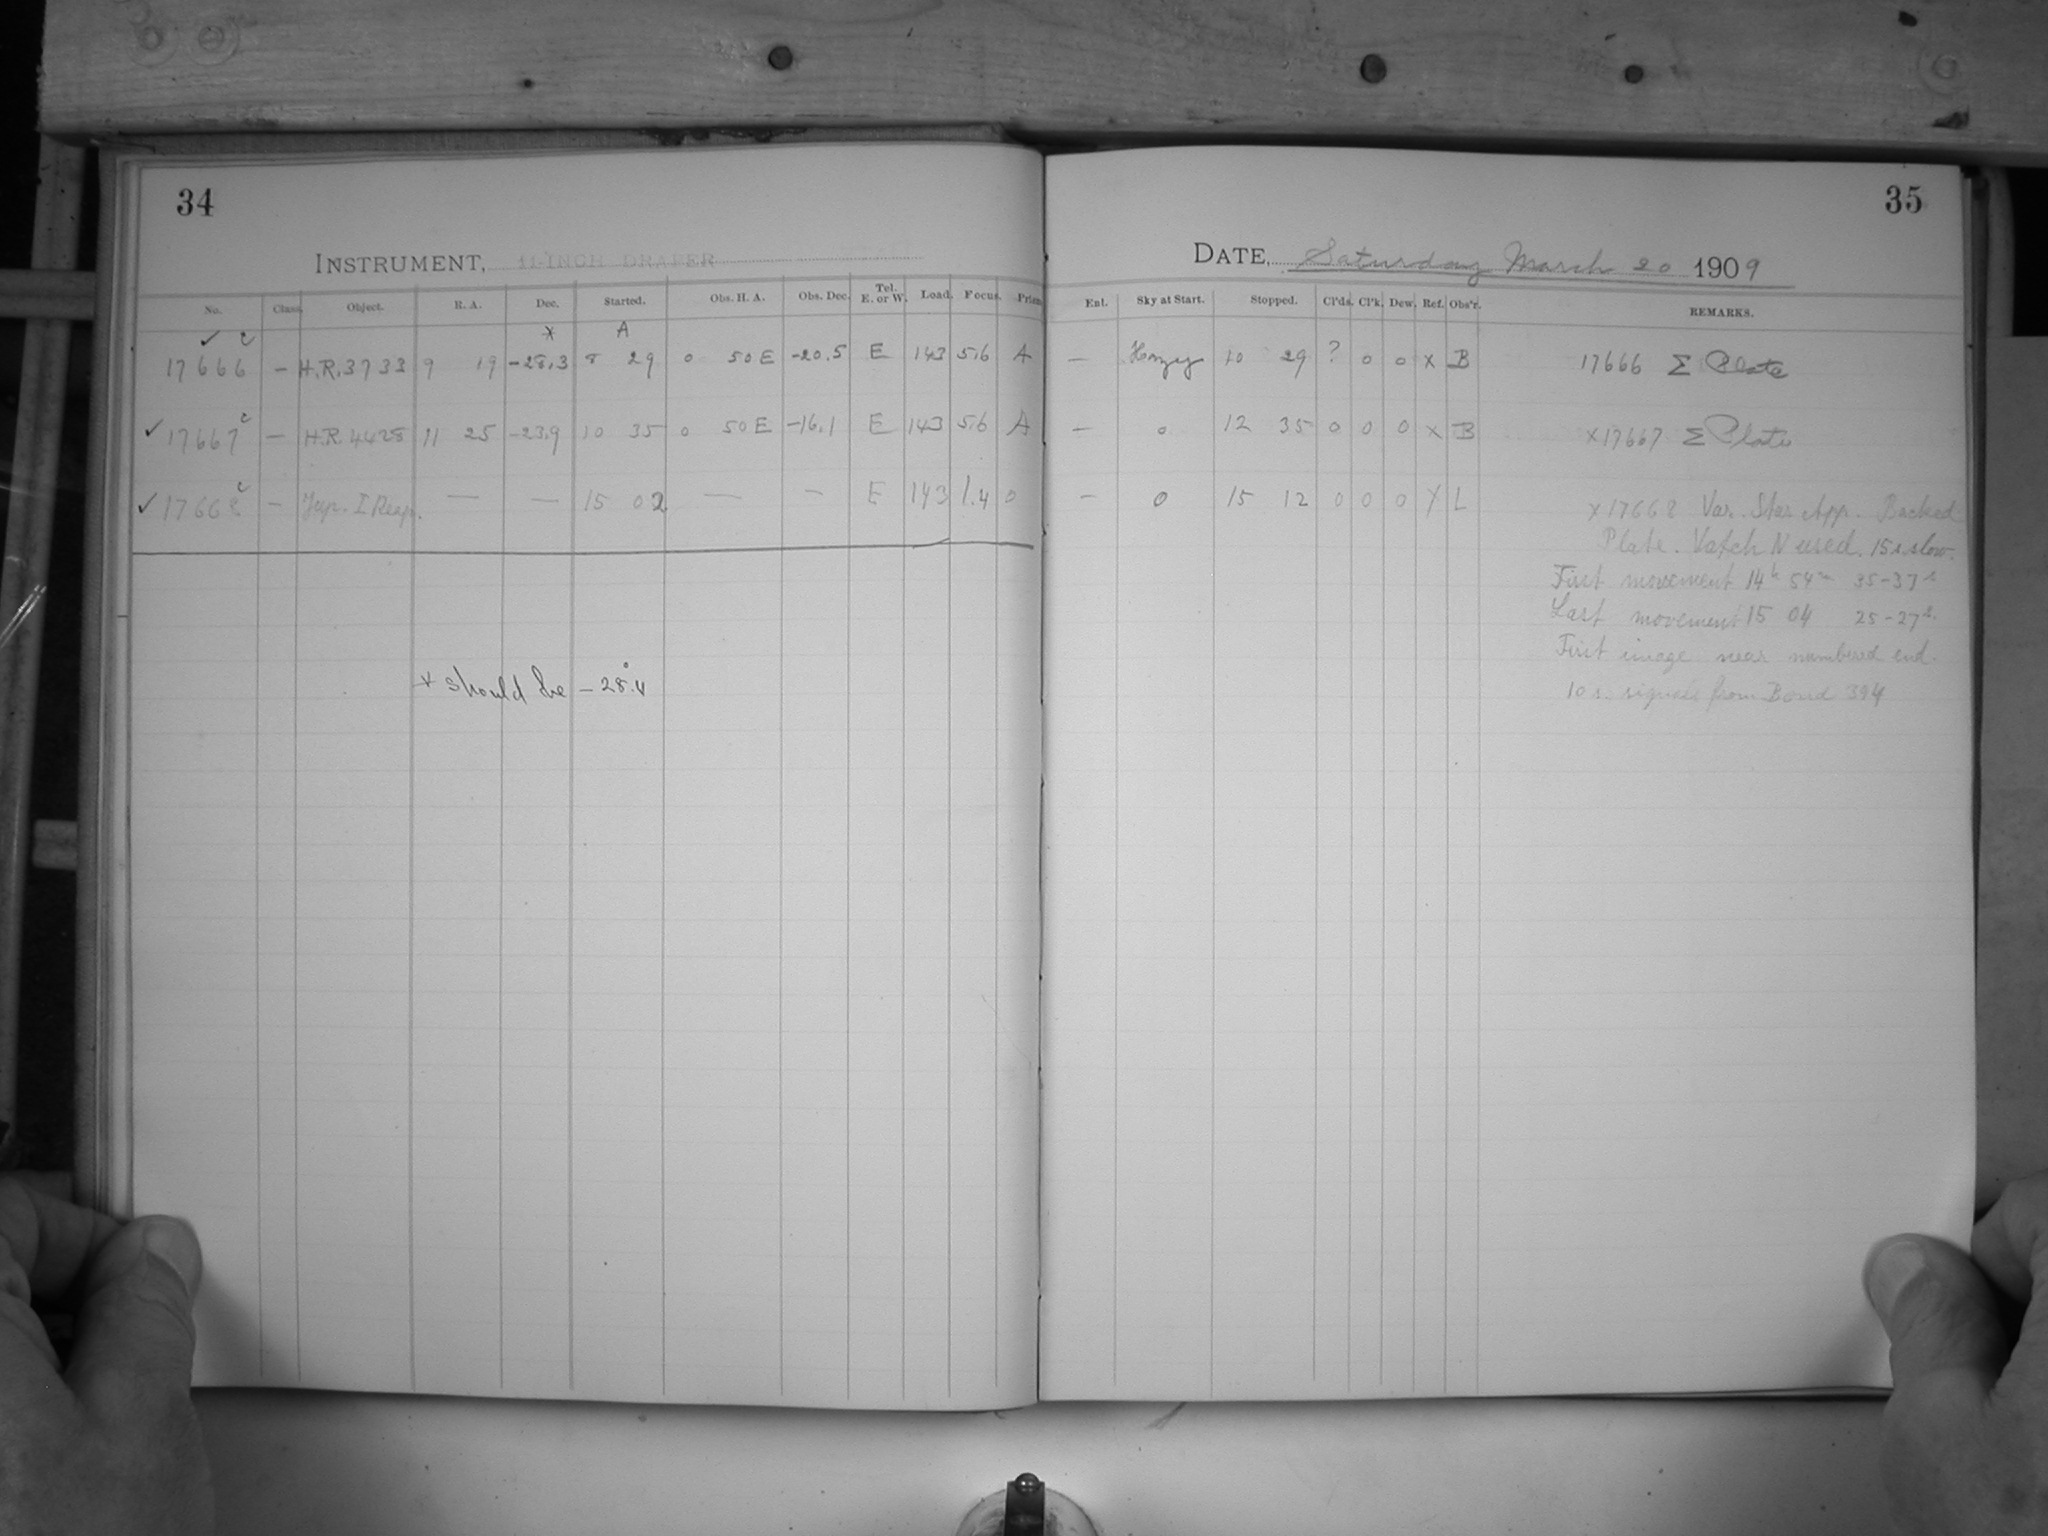 34
INSTRUMENT, 11-INCH DRAPER
No. Class Object. R. A. Dec. Started. Obs. H. A. Obs. Dec. Tel. E. or W. Load. Focus. Prism
✓ c * A
17666 — H.R. 3733 9 19 -28.3 8 29 0 50 E -20.5 E 143 5.6 A
✓ 17667 c — H.R. 4428 11 25 -23.9 10 35 0 50 E -16.1 E 143 5.6 A
✓ 17668 c — Jup. I Reap. — — 15 02 — — E 143 1.4 0
* should be -28.°4
35
DATE, Saturday March 20 1909
Ent. Sky at Start. Stopped. Cl'ds. Cl'k. Dew. Ref. Obs'r. REMARKS.
— Hazy 10 29 ? 0 0 x B 17666 Σ Plate
— 0 12 35 0 0 0 x B x17667 Σ Plate
— 0 15 12 0 0 0 Y L x17668 Var. Star App. Backed
Plate. Watch N used. 15 s. slow.
First movement 14h 54m 35-37s
Last movement 15 04 25-27s.
First image near numbered end.
10 s. signals from Bond 394